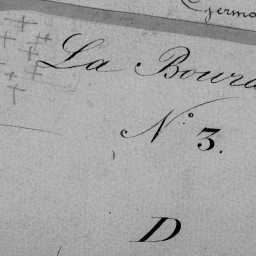 Germa
La Boura
N.° 3.
D